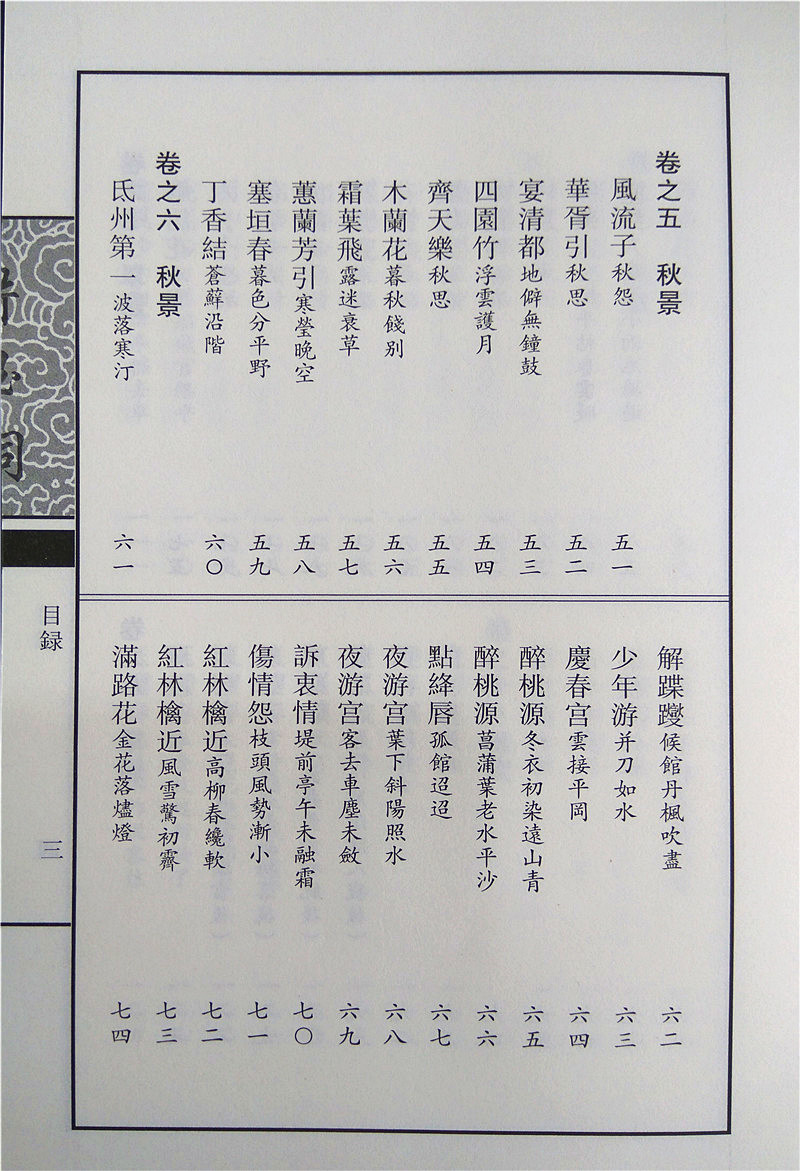 卷之五　秋景
風流子秋怨　五一
華胥引秋思　五二
宴清都地僻無鐘鼓　五三
四園竹浮雲護月　五四
齊天樂秋思　五五
木蘭花暮秋餞别　五六
霜葉飛露迷衰草　五七
蕙蘭芳引寒瑩晚空　五八
塞垣春暮色分平野　五九
丁香結蒼蘚沿階　六〇
卷之六　秋景
氐州第一波落寒汀　六一
解蹀躞候館丹楓吹盡　六二
少年游并刀如水　六三
慶春宫雲接平岡　六四
醉桃源冬衣初染遠山青　六五
醉桃源菖蒲葉老水平沙　六六
點絳唇孤館迢迢　六七
夜游宫葉下斜陽照水　六八
夜游宫客去車塵未斂　六九
訴衷情堤前亭午未融霜　七〇
傷情怨枝頭風勢漸小　七一
紅林檎近高柳春纔軟　七二
紅林檎近風雪驚初霽　七三
滿路花金花落燼燈　七四
目録
三